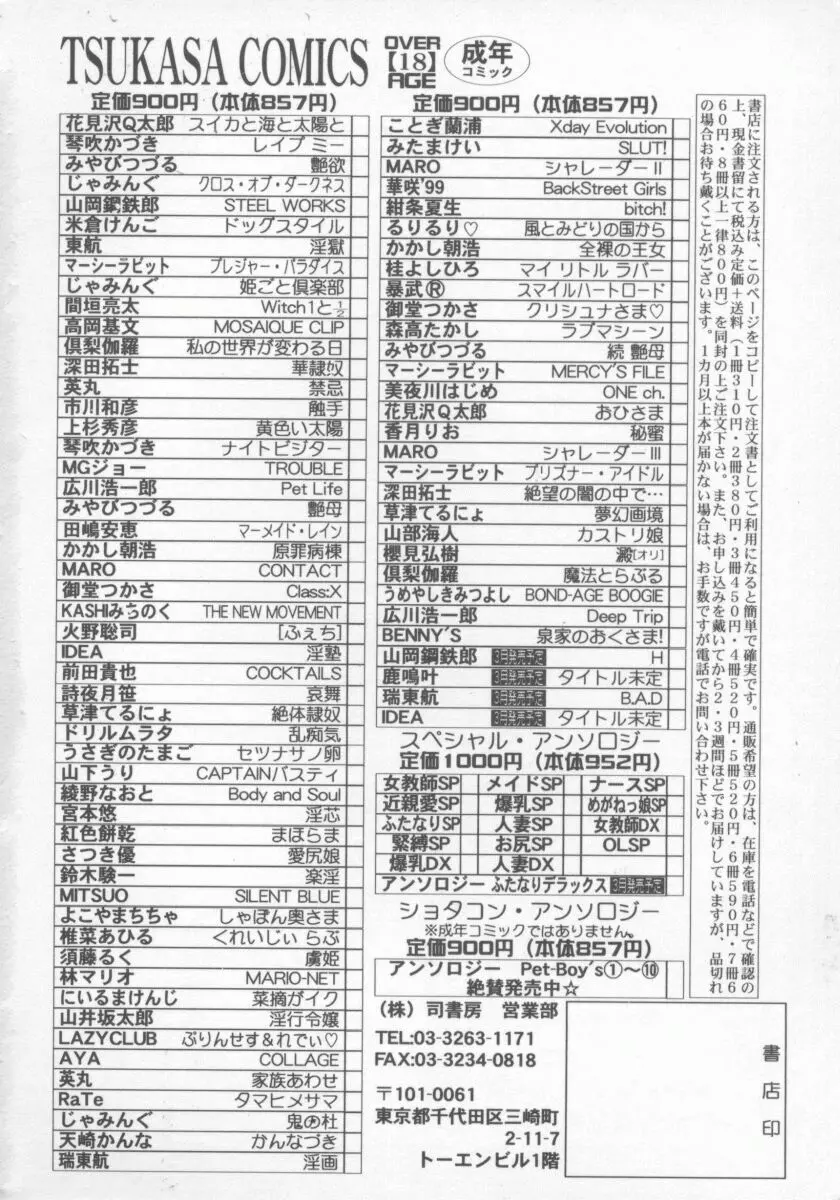 TSUKASA COMICS
OVER
【18】
AGE
成年
コミック
定価900円（本体857円）
花見沢Q太郎 スイカと海と太陽と
琴吹かづき レイプ ミー
みやびつづる 艶欲
じゃみんぐ クロス・オブ・ダークネス
山岡鋼鉄郎 STEEL WORKS
米倉けんご ドッグスタイル
東航 淫獄
マーシーラビット プレジャー・パラダイス
じゃみんぐ 姫ごと倶楽部
間垣亮太 Witch1と½
高岡基文 MOSAIQUE CLIP
倶梨伽羅 私の世界が変わる日
深田拓士 華隷奴
英丸 禁忌
市川和彦 触手
上杉秀彦 黄色い太陽
琴吹かづき ナイトビジター
MGジョー TROUBLE
広川浩一郎 Pet Life
みやびつづる 艶母
田嶋安恵 マーメイド・レイン
かかし朝浩 原罪病棟
MARO CONTACT
御堂つかさ Class:X
KASHIみちのく THE NEW MOVEMENT
火野聡司 [ふぇち]
IDEA 淫塾
前田貴也 COCKTAILS
詩夜月笹 哀舞
草津てるにょ 絶体隷奴
ドリルムラタ 乱痴気
うさぎのたまご セツナサノ卵
山下うり CAPTAINバスティ
綾野なおと Body and Soul
宮本悠 淫芯
紅色餅乾 まほらま
さつき優 愛尻娘
鈴木験一 楽淫
MITSUO SILENT BLUE
よこやまちちゃ しゃぼん奥さま
椎菜あひる くれいじぃ らぶ
須藤るく 虜姫
林マリオ MARIO-NET
にいるまけんじ 菜摘がイク
山井坂太郎 淫行令嬢
LAZYCLUB ぷりんせす&れでぃ♡
AYA COLLAGE
英丸 家族あわせ
RaTe タマヒメサマ
じゃみんぐ 鬼の杜
天崎かんな かんなづき
瑞東航 淫画
定価900円（本体857円）
ことぎ蘭浦 Xday Evolution
みたまけい SLUT!
MARO シャレーダーⅡ
華咲'99 BackStreet Girls
紺条夏生 bitch!
るりるり♡ 風とみどりの国から
かかし朝浩 全裸の王女
桂よしひろ マイ リトル ラバー
暴武Ⓡ スマイルハートロード
御堂つかさ クリシュナさま♡
森高たかし ラブマシーン
みやびつづる 続 艶母
マーシーラビット MERCY'S FILE
美夜川はじめ ONE ch.
花見沢Q太郎 おひさま
香月りお 秘蜜
MARO シャレーダーⅢ
マーシーラビット プリズナー・アイドル
深田拓士 絶望の闇の中で…
草津てるにょ 夢幻画境
山部海人 カストリ娘
櫻見弘樹 澱[オリ]
倶梨伽羅 魔法とらぶる
うめやしきみつよし BOND-AGE BOOGIE
広川浩一郎 Deep Trip
BENNY'S 泉家のおくさま!
山岡鋼鉄郎 3月発売予定 H
鹿鳴叶 3月発売予定 タイトル未定
瑞東航 3月発売予定 B.A.D
IDEA 3月発売予定 タイトル未定
スペシャル・アンソロジー
定価1000円（本体952円）
女教師SP メイドSP ナースSP
近親愛SP 爆乳SP めがねっ娘SP
ふたなりSP 人妻SP 女教師DX
緊縛SP お尻SP OLSP
爆乳DX 人妻DX
アンソロジー ふたなりデラックス 3月発売予定
ショタコン・アンソロジー
※成年コミックではありません。
定価900円（本体857円）
アンソロジー Pet-Boy's①～⑩
絶賛発売中☆
（株）司書房 営業部
TEL:03-3263-1171
FAX:03-3234-0818
〒101-0061
東京都千代田区三崎町
2-11-7
トーエンビル1階
書店に注文される方は、このページをコピーして注文書としてご利用になると簡単で確実です。通販希望の方は、在庫を電話などで確認の
上、現金書留にて税込み定価＋送料（1冊310円・2冊380円・3冊450円・4冊520円・5冊520円・6冊590円・7冊6
60円・8冊以上一律800円）を同封の上ご注文下さい。また、お申し込みを戴いてから2・3週間ほどでお届けしていますが、品切れ
の場合お待ち戴くことがございます。1カ月以上本が届かない場合は、お手数ですが電話でお問い合わせ下さい。
書店印